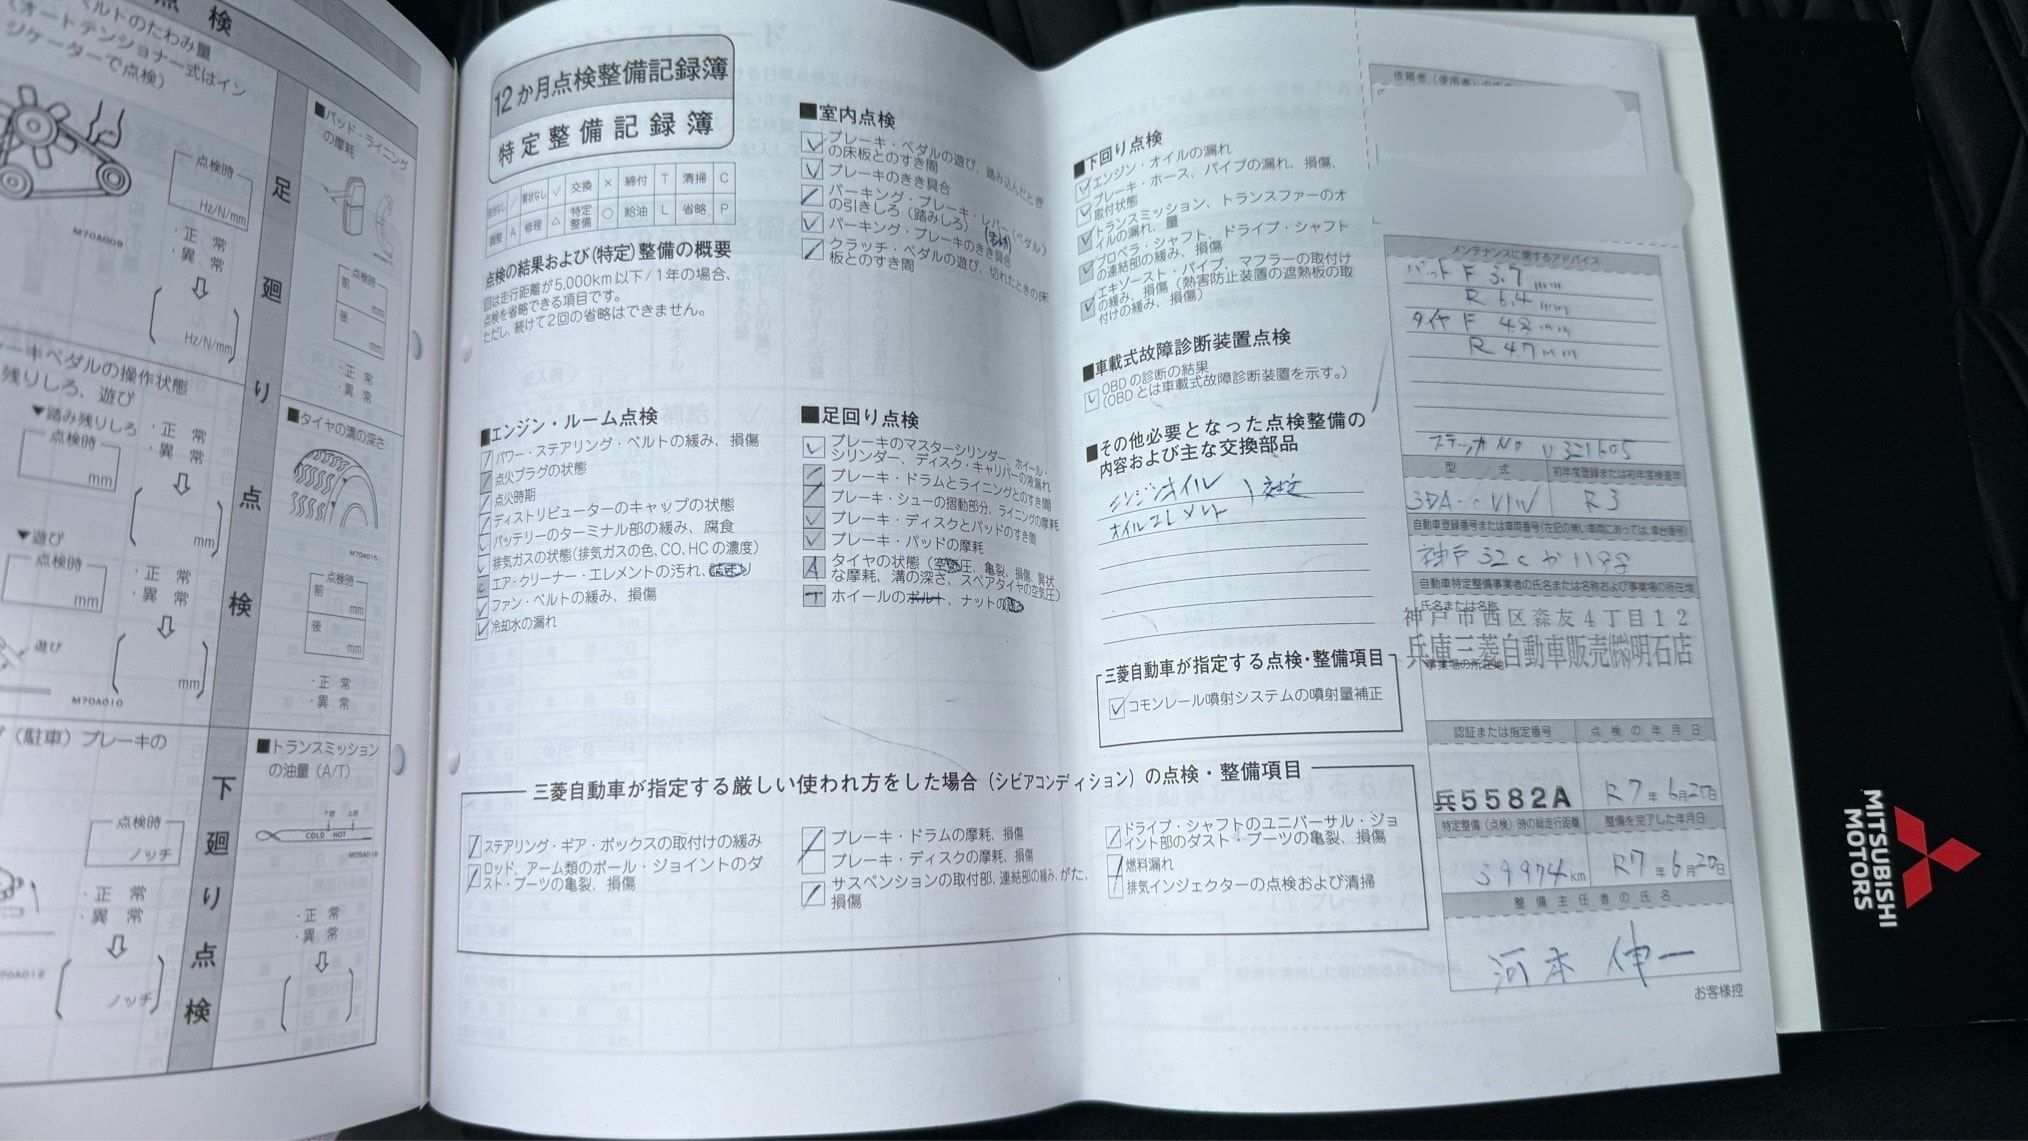 点検
ベルトのたわみ量
(オートテンショナー式はイン
ジケーターで点検)
点検時
Hz/N/mm
・正 常
・異 常
Hz/N/mm
M70A009
ーキペダルの操作状態
残りしろ、遊び
▼踏み残りしろ
点検時
mm
・正 常
・異 常
mm
▼遊び
点検時
mm
・正 常
・異 常
遊び
mm
M70A010
(駐車)ブレーキの
点検時
ノッチ
・正 常
・異 常
ノッチ
足廻り点検
下廻り点検
■パッド・ライニング
の摩耗
点検時
前
mm
後
mm
・正 常
・異 常
■タイヤの溝の深さ
M70A015
点検時
前
mm
後
mm
・正 常
・異 常
■トランスミッション
の油量(A/T)
COLD HOT
・正 常
・異 常
12か月点検整備記録簿
特定整備記録簿
交換 × 締付 T 清掃 C
調整 A 修理 △ 特定整備 ○ 給油 L 省略 P
点検の結果および(特定)整備の概要
は走行距離が5,000km以下/1年の場合、
点検を省略できる項目です。
ただし、続けて2回の省略はできません。
■エンジン・ルーム点検
パワー・ステアリング・ベルトの緩み、損傷
点火プラグの状態
点火時期
ディストリビューターのキャップの状態
バッテリーのターミナル部の緩み、腐食
排気ガスの状態(排気ガスの色、CO、HCの濃度)
エア・クリーナー・エレメントの汚れ、
ファン・ベルトの緩み、損傷
冷却水の漏れ
■室内点検
ブレーキ・ペダルの遊び、踏み込んだとき
の床板とのすき間
ブレーキのきき具合
パーキング・ブレーキ・レバー(ペダル)
の引きしろ(踏みしろ)
パーキング・ブレーキのきき具合
クラッチ・ペダルの遊び、切れたときの床
板とのすき間
■足回り点検
ブレーキのマスターシリンダー、ホイール・
シリンダー、ディスク・キャリパーの液漏れ
ブレーキ・ドラムとライニングとのすき間
ブレーキ・シューの摺動部分、ライニングの摩耗
ブレーキ・ディスクとパッドのすき間
ブレーキ・パッドの摩耗
A タイヤの状態(空気圧、亀裂、損傷、異状
な摩耗、溝の深さ、スペアタイヤの空気圧)
T ホイールのボルト、ナットの
■下回り点検
エンジン・オイルの漏れ
ブレーキ・ホース、パイプの漏れ、損傷、
取付状態
トランスミッション、トランスファーのオ
イルの漏れ、量
プロペラ・シャフト、ドライブ・シャフト
の連結部の緩み、損傷
エキゾースト・パイプ、マフラーの取付け
の緩み、損傷(熱害防止装置の遮熱板の取
付けの緩み、損傷)
■車載式故障診断装置点検
OBDの診断の結果
(OBDとは車載式故障診断装置を示す。)
■その他必要となった点検整備の
内容および主な交換部品
エンジンオイル
オイルエレメント
交換
三菱自動車が指定する点検・整備項目
コモンレール噴射システムの噴射量補正
三菱自動車が指定する厳しい使われ方をした場合(シビアコンディション)の点検・整備項目
ステアリング・ギア・ボックスの取付けの緩み
ロッド、アーム類のボール・ジョイントのダ
スト・ブーツの亀裂、損傷
ブレーキ・ドラムの摩耗、損傷
ブレーキ・ディスクの摩耗、損傷
サスペンションの取付部、連結部の緩み、がた、
損傷
ドライブ・シャフトのユニバーサル・ジョ
イント部のダスト・ブーツの亀裂、損傷
燃料漏れ
排気インジェクターの点検および清掃
メンテナンスに関するアドバイス
パット F 3.7mm
R 6.4mm
タイヤ F 4.8mm
R 4.7mm
ステッカNO V321605
型 式
初年度登録または初年度検査年
3DA-CV1W
R3
自動車登録番号または車両番号(左記の無い車両にあっては、車台番号)
神戸 32C か 1198
自動車特定整備事業者の氏名または名称および事業場の所在地
氏名または名称
神戸市西区森友4丁目12
兵庫三菱自動車販売㈱明石店
事業場の所在地
認証または指定番号
点検の年月日
兵5582A
R7年6月20日
特定整備(点検)時の総走行距離
整備を完了した年月日
39974km
R7年6月20日
整備主任者の氏名
河本 伸一
お客様控
MITSUBISHI
MOTORS